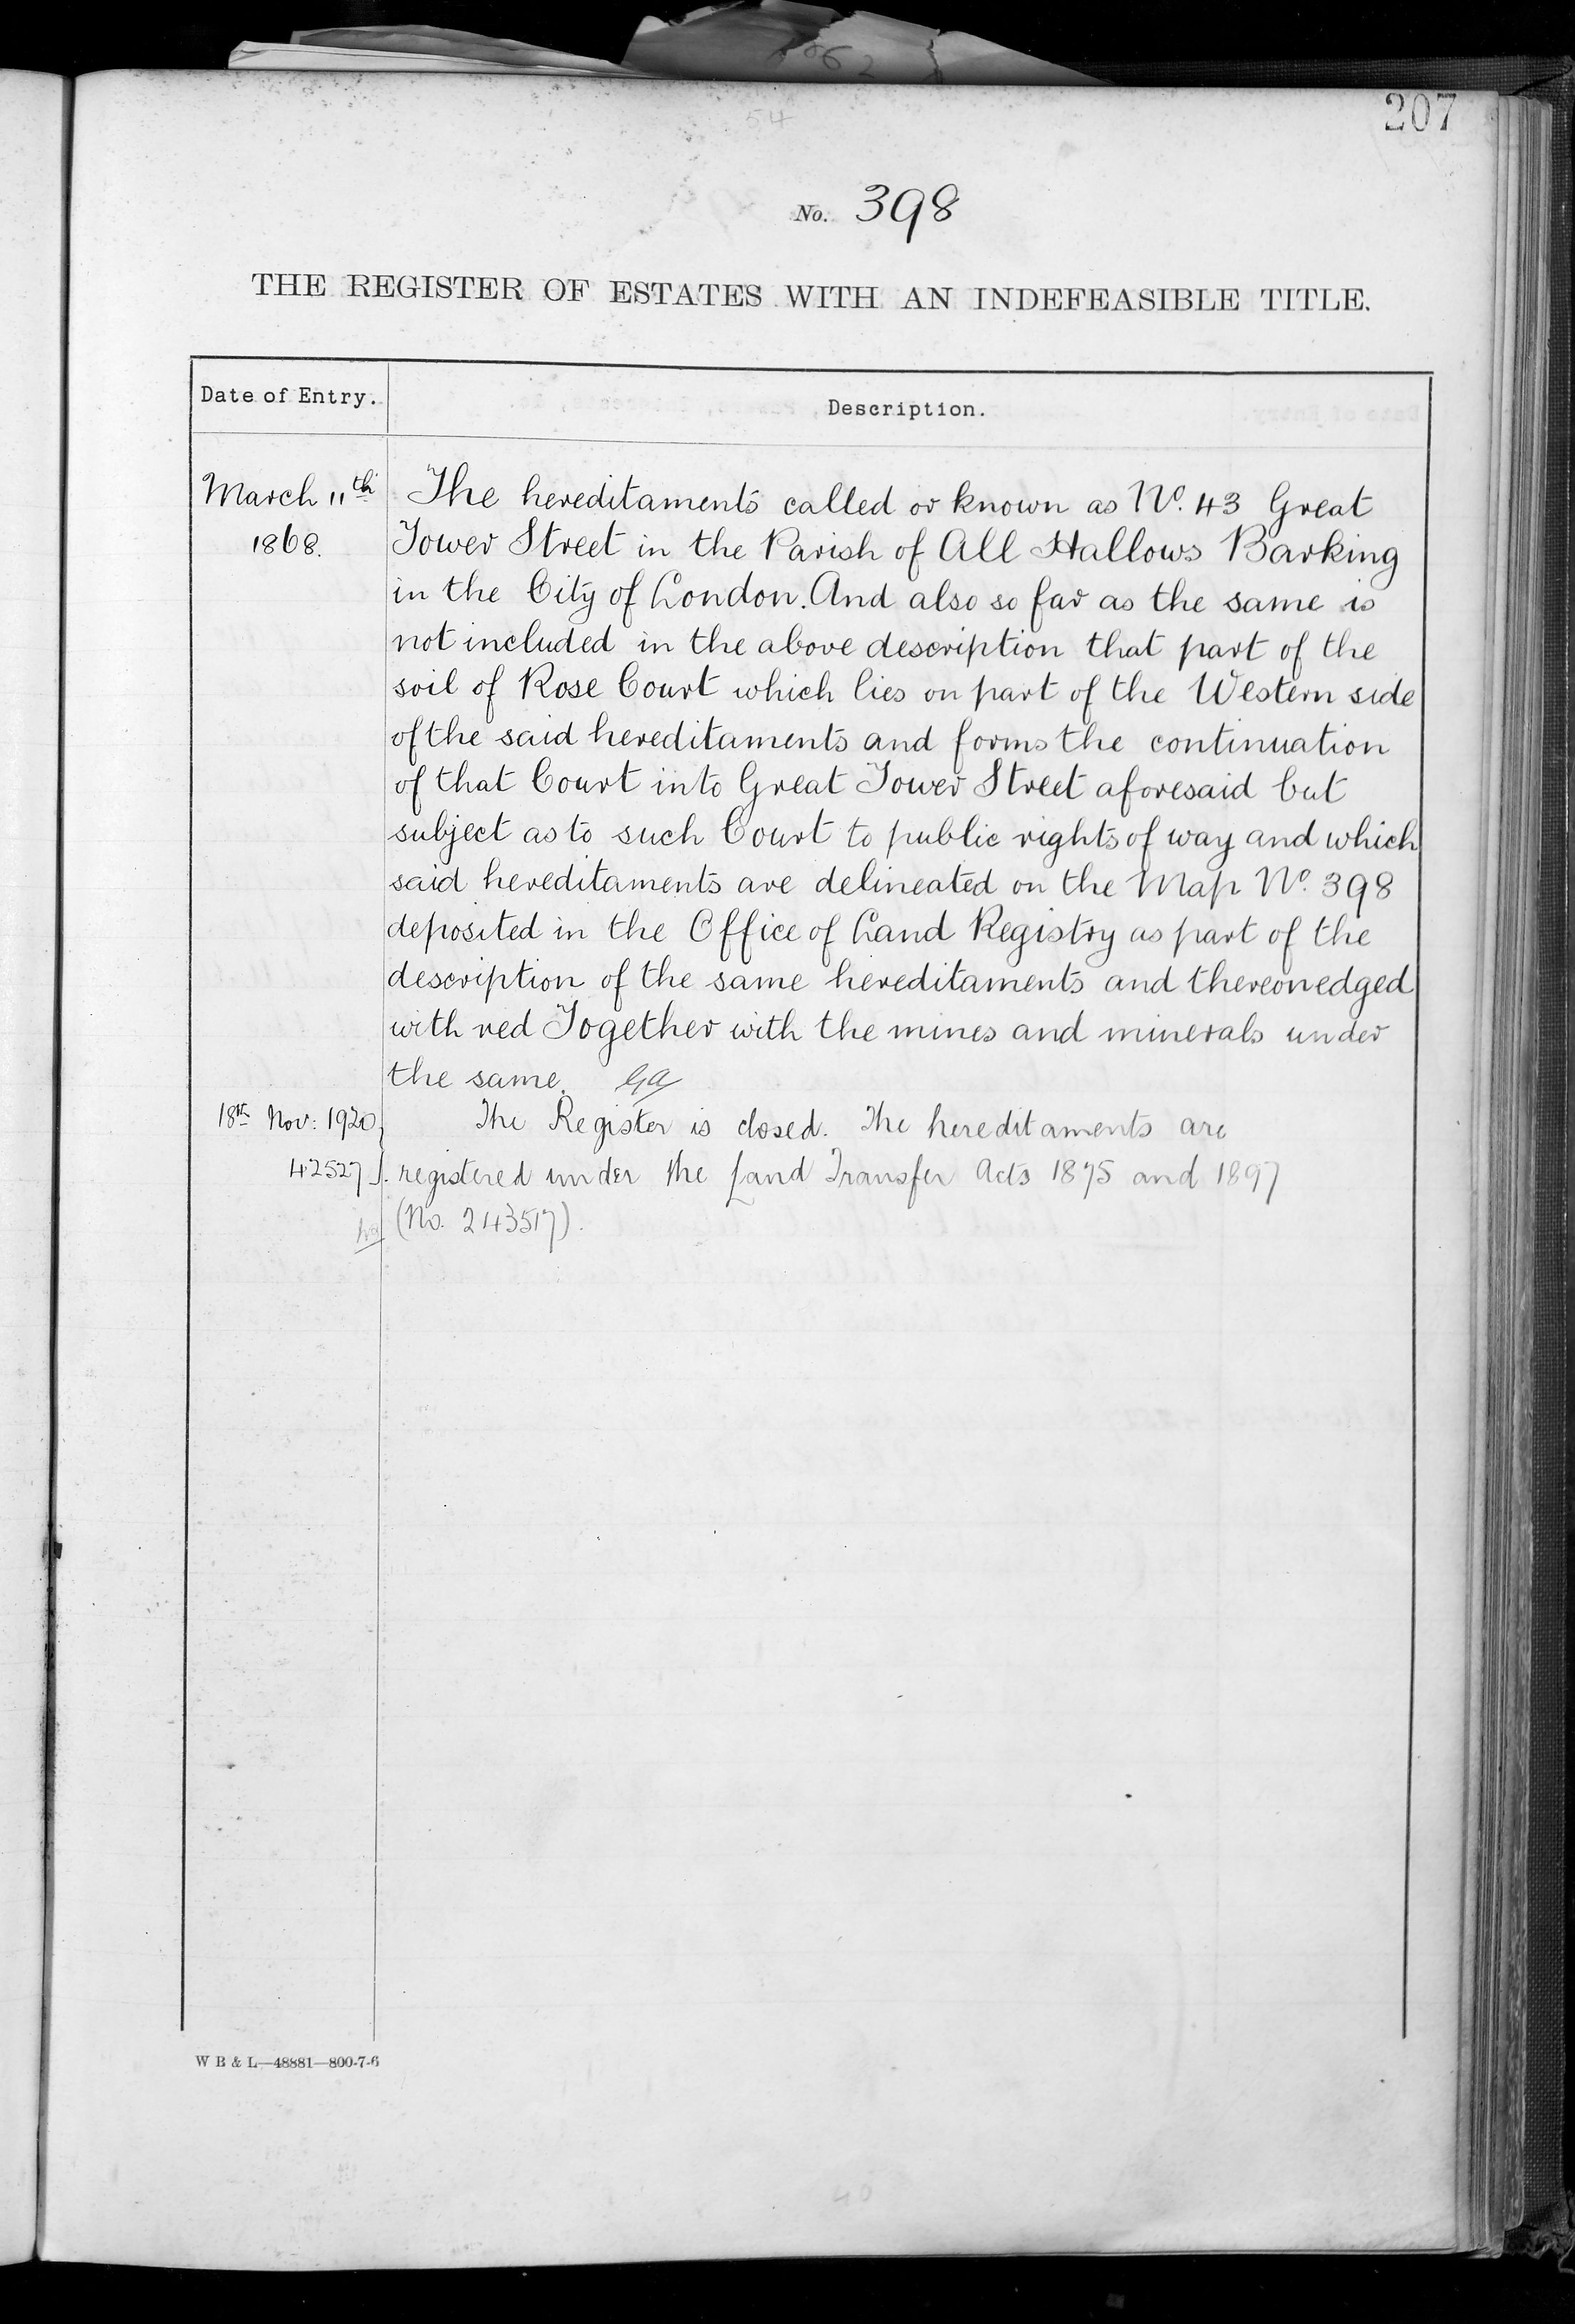 207
54
No. 398
THE REGISTER OF ESTATES WITH AN INDEFEASIBLE TITLE.
Date of Entry.
Description.
March 11th
1868.
The hereditaments called or known as No. 43 Great
Tower Street in the Parish of All Hallows Barking
in the City of London. And also so far as the same is
not included in the above description that part of the
soil of Rose Court which lies on part of the Western side
of the said hereditaments and forms the continuation
of that Court into Great Tower Street aforesaid but
subject as to such Court to public rights of way and which
said hereditaments are delineated on the Map No. 398
deposited in the Office of Land Registry as part of the
description of the same hereditaments and thereon edged
with red Together with the mines and minerals under
the same.
18th Nov: 1920
42527
The Register is closed. The hereditaments are
registered under the Land Transfer Acts 1875 and 1897
(No. 243517).
W B & L—48881—800-7-6